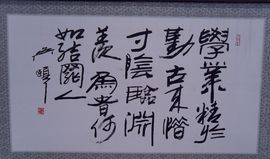 學業精於
勤古來惜
寸陰臨淵
羨魚何
如結網人